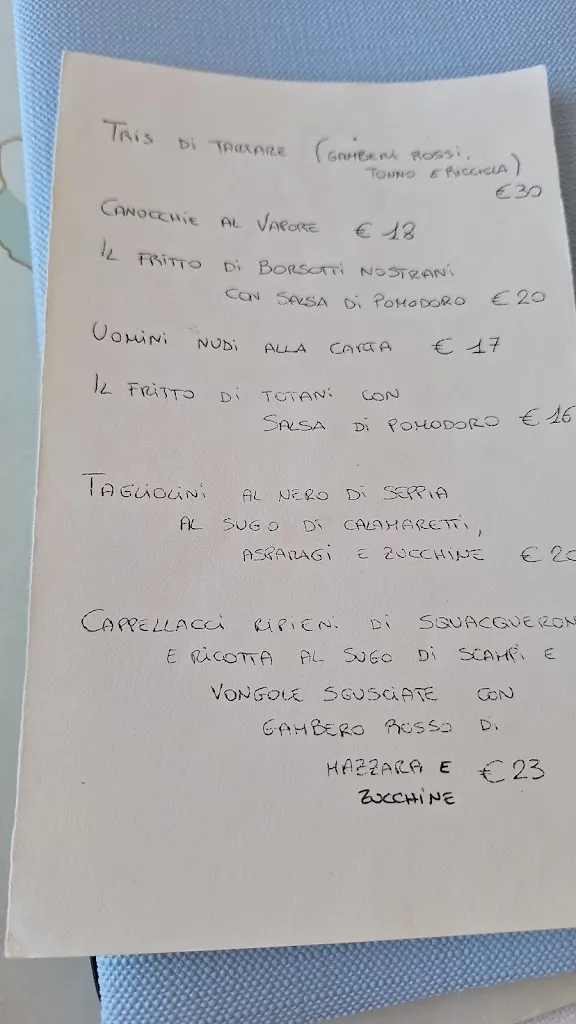 TRIS Di TARTARE (GAMBERI ROSSi,
TONNO E RICCIOLA)
€30
CANOCCHIE AL VAPORE € 18
IL FRITTO Di BORSOTTi NOSTRANi
CON SALSA Di POMODORO € 20
UOMiNi NUDi ALLA CARTA € 17
IL FRiTTO Di TOTANi CON
SALSA Di POMODORO € 16
TAGLiOLiNi AL NERO Di SEPPiA
AL SUGO Di CALAMARETTi,
ASPARAGi E ZUCCHiNE € 20
CAPPELLACCi RiPiENi Di SQUACQUERON
E RiCOTTA AL SUGO Di SCAMPi E
VONGOLE SGUSCiATE CON
GAMBERO ROSSO Di
MAZZARA E € 23
ZUCCHiNE